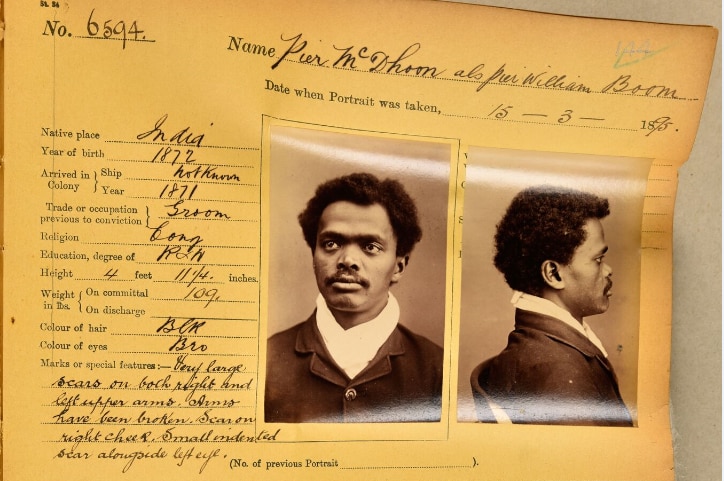 No. 6594.
Name Pier McDhoon als Pier William Boom
Date when Portrait was taken, 15 — 3 — 1895.
Native place India
Year of birth 1872
Arrived in Colony } Ship not Known
Year 1871
Trade or occupation previous to conviction } Groom
Religion Cong
Education, degree of R & W
Height 4 feet 11¼. inches.
Weight in lbs. { On committal 109.
On discharge
Colour of hair Blk
Colour of eyes Bro
Marks or special features:— Very large
scars on both right and
left upper arms. Arms
have been broken. Scar on
right cheek. Small indented
scar alongside left eye.
(No. of previous Portrait ).